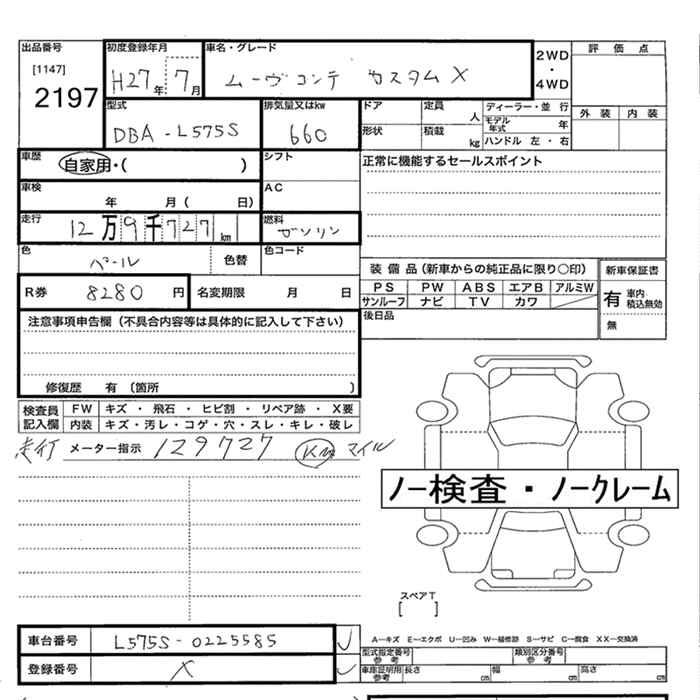 出品番号 初度登録年月 車名・グレード 2WD 評価点
[1147] H27年 7月 ムーヴコンテ カスタム X ・
2197 4WD
型式 排気量又はkw ドア 定員 人 ディーラー・並 行 外装 内装
DBA-L575S 660 形状 積載 kg モデル年式 年
ハンドル 左・右
車歴 自家用・( ) シフト 正常に機能するセールスポイント
車検 年 月( 日) AC
走行 12万9千727km 燃料 ガソリン
色 パール 色替 色コード
装備品(新車からの純正品に限り○印) 新車保証書
R券 8280円 名変期限 月 日 PS PW ABS エアB アルミW 有 車内積込無効
サンルーフ ナビ TV カワ 無
注意事項申告欄(不具合内容等は具体的に記入して下さい) 後日品
修復歴 有(箇所 )
検査員 FW キズ・飛石・ヒビ割・リペア跡・X要
記入欄 内装 キズ・汚レ・コゲ・穴・スレ・キレ・破レ
走行 メーター指示 129727 Km マイル
ノー検査・ノークレーム
スペアT
[ ]
車台番号 L575S-0225585 A-キズ E-エクボ U-凹み W-補修跡 S-サビ C-腐食 XX-交換済
型式指定番号 参考 類別区分番号 参考
登録番号 X 車庫証明用 参考 長さ cm 幅 cm 高さ cm